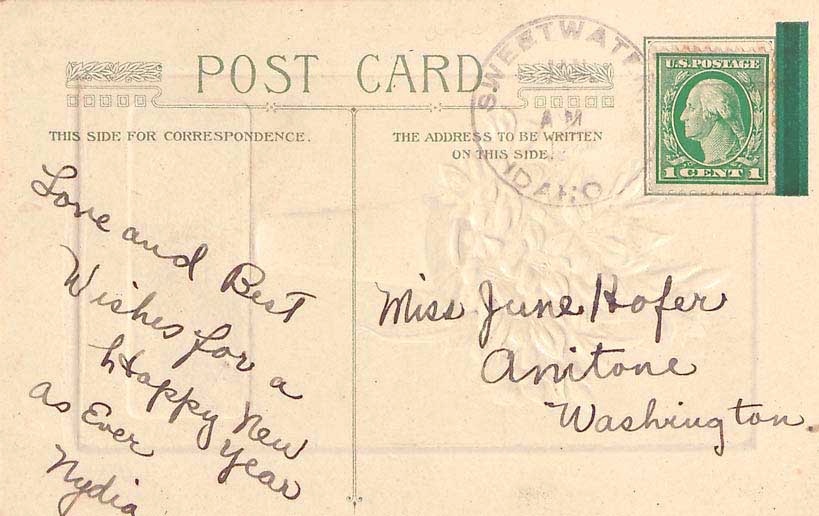 POST CARD
THIS SIDE FOR CORRESPONDENCE.
THE ADDRESS TO BE WRITTEN
ON THIS SIDE.
SWEETWATER
AM
IDAHO
U.S. POSTAGE
1 CENT 1
Love and Best
Wishes for a
Happy New
Year
as Ever
Nydia
Miss June Hofer
Anitone
Washington.